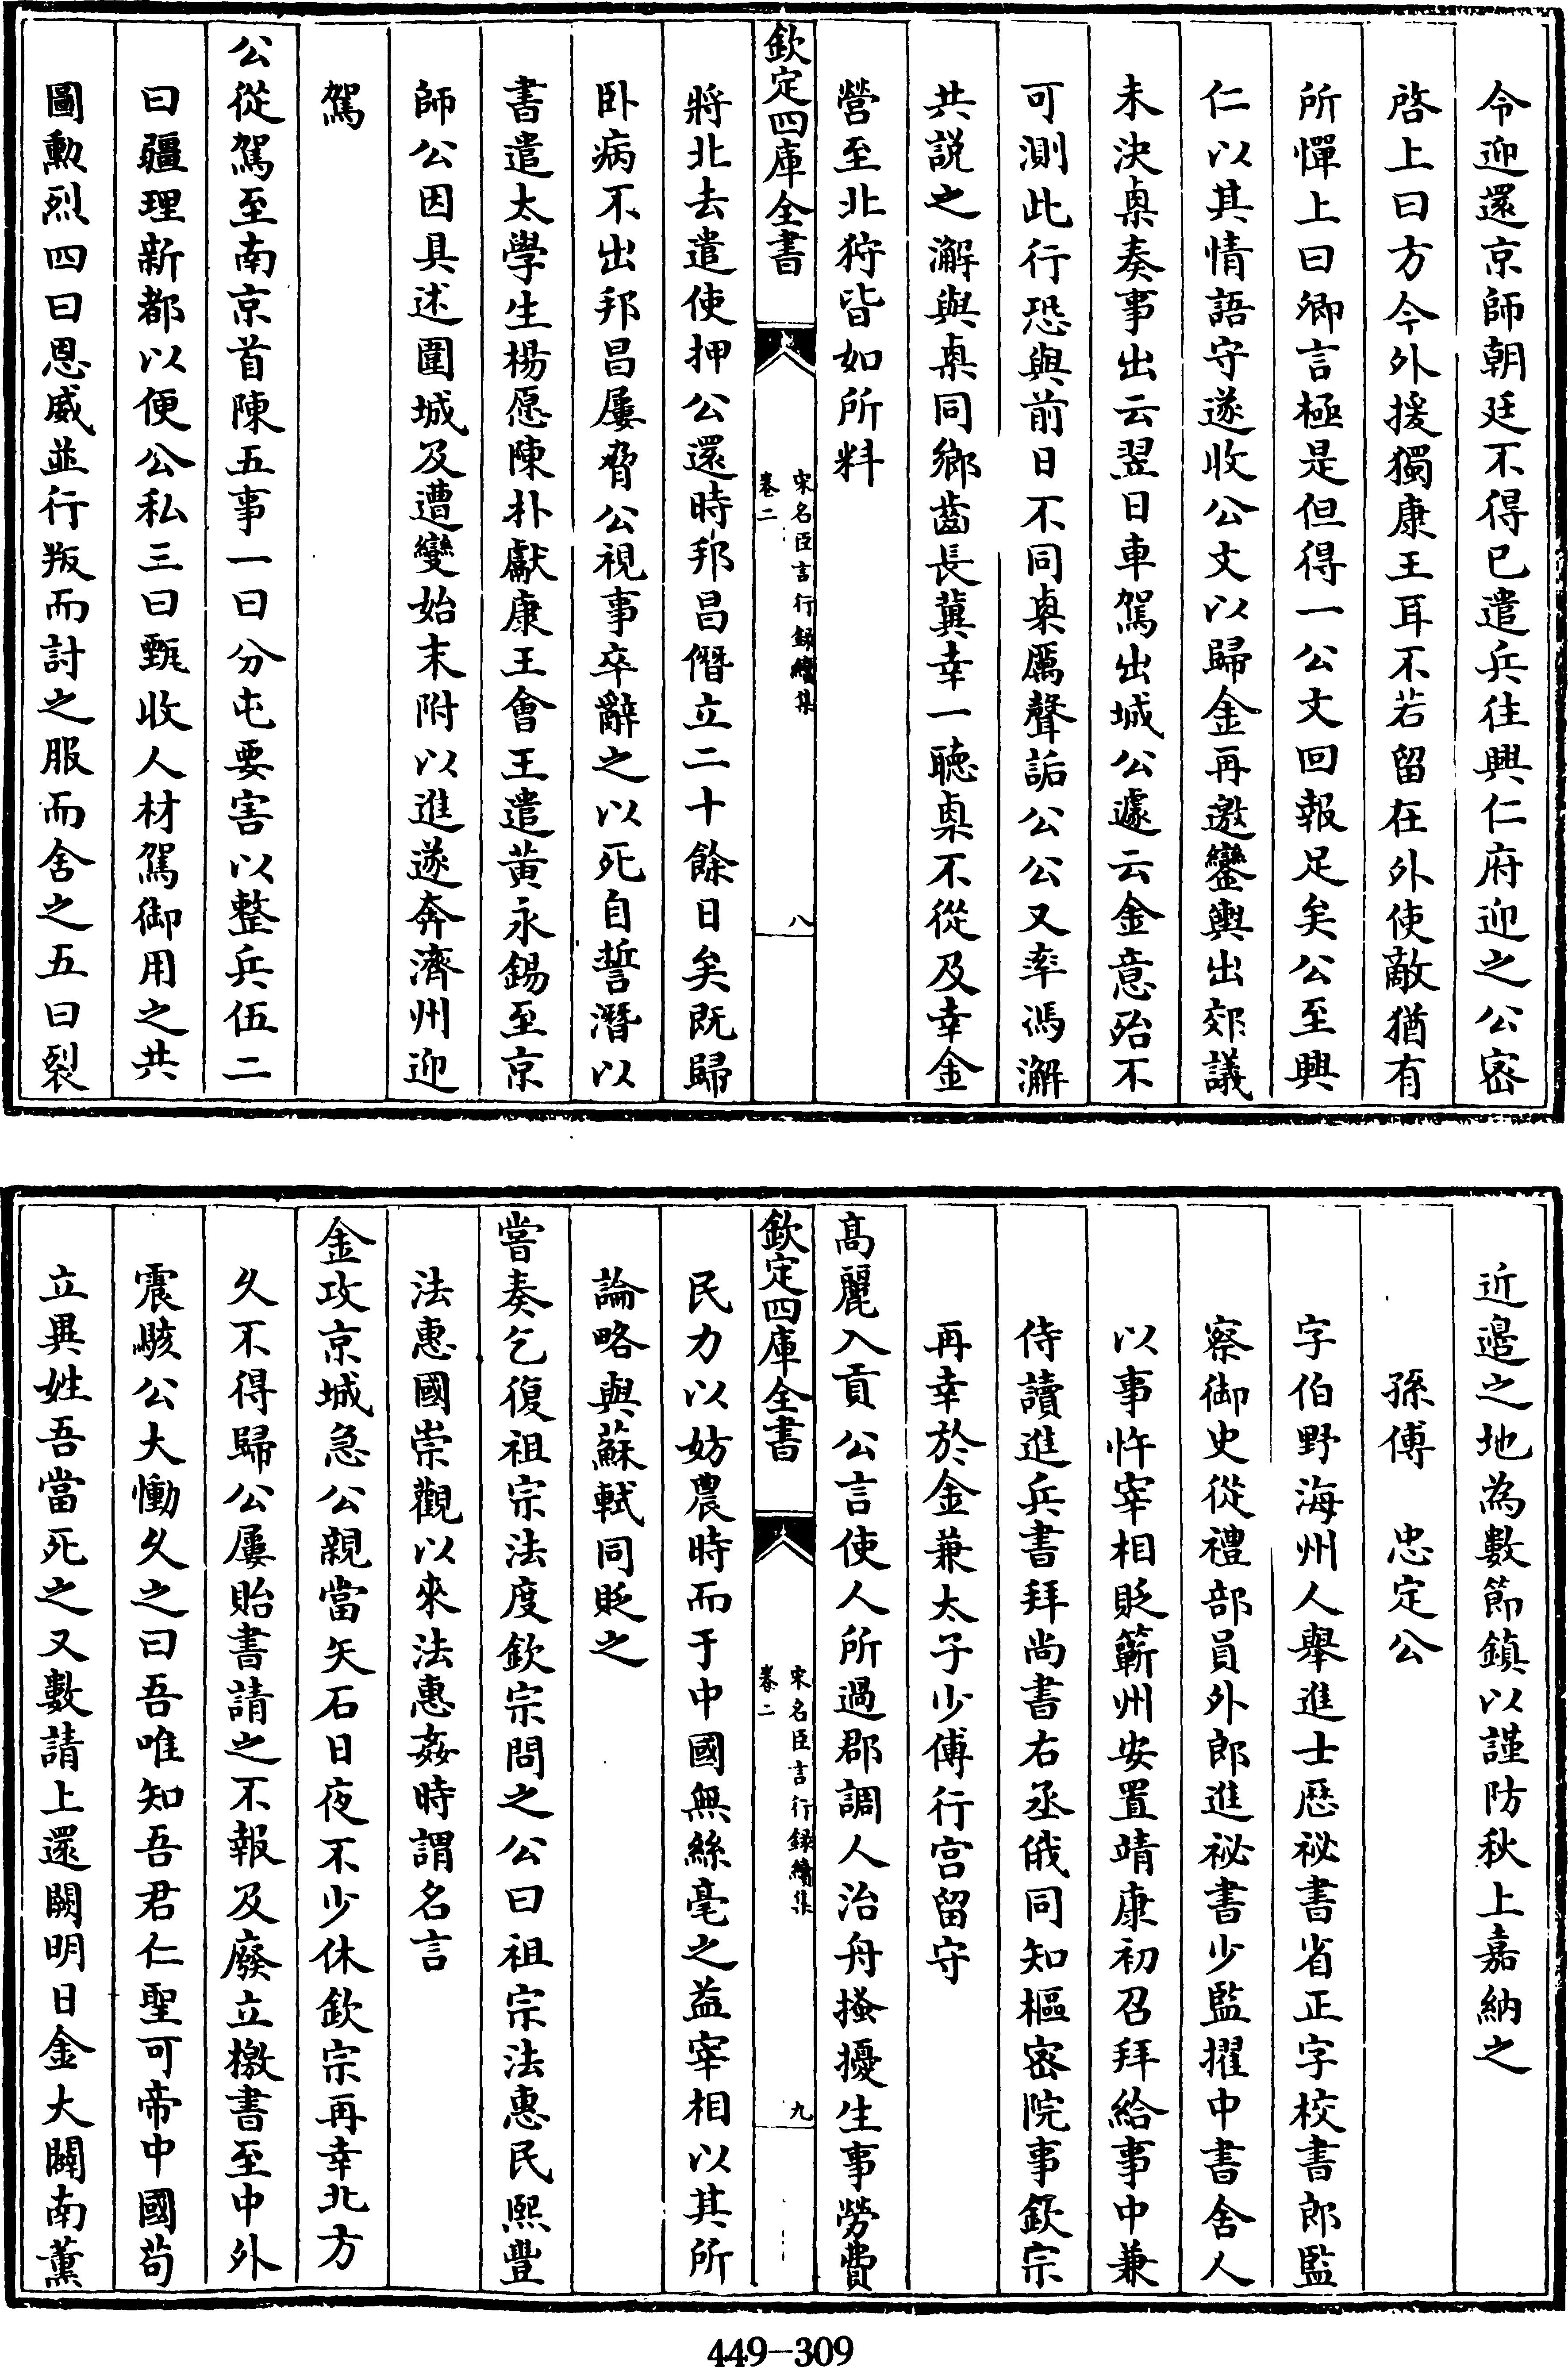 令迎還京師朝廷不得已遣兵往興仁府迎之公密
啓上曰方今外援獨康王耳不若留在外使敵猶有
所憚上曰卿言極是但得一公文回報足矣公至興
仁以其情語守遂收公文以歸金再邀鑾輿出郊議
未決㮚奏事出云翌日車駕出城公遽云金意殆不
可測此行恐與前日不同㮚厲聲詬公公又率馮澥
共説之澥與㮚同鄉齒長冀幸一聽㮚不從及幸金
營至北狩皆如所料
欽定四庫全書
宋名臣言行録續集
卷二
八
將北去遣使押公還時邦昌僭立二十餘日矣既歸
卧病不出邦昌屢脅公視事卒辭之以死自誓潛以
書遣太學生楊愿陳朴獻康王會王遣黄永錫至京
師公因具述圍城及遭變始末附以進遂奔濟州迎
駕
公從駕至南京首陳五事一曰分屯要害以整兵伍二
曰疆理新都以便公私三曰甄收人材駕御用之共
圖勲烈四曰恩威並行叛而討之服而舍之五曰裂
近邉之地為數節鎮以謹防秋上嘉納之
孫傅 忠定公
字伯野海州人舉進士歴祕書省正字校書郎監
察御史從禮部員外郎進祕書少監擢中書舍人
以事忤宰相貶蘄州安置靖康初召拜給事中兼
侍讀進兵書拜尚書右丞俄同知樞密院事欽宗
再幸於金兼太子少傅行宫留守
髙麗入貢公言使人所過郡調人治舟搔擾生事勞費
欽定四庫全書
宋名臣言行録續集
卷二
九
民力以妨農時而于中國無絲毫之益宰相以其所
論略與蘇軾同貶之
嘗奏乞復祖宗法度欽宗問之公曰祖宗法惠民熙豐
法惠國崇觀以來法惠姦時謂名言
金攻京城急公親當矢石日夜不少休欽宗再幸北方
久不得歸公屢貽書請之不報及廢立檄書至中外
震駭公大慟久之曰吾唯知吾君仁聖可帝中國苟
立異姓吾當死之又數請上還闕明日金大闢南薰
449-309